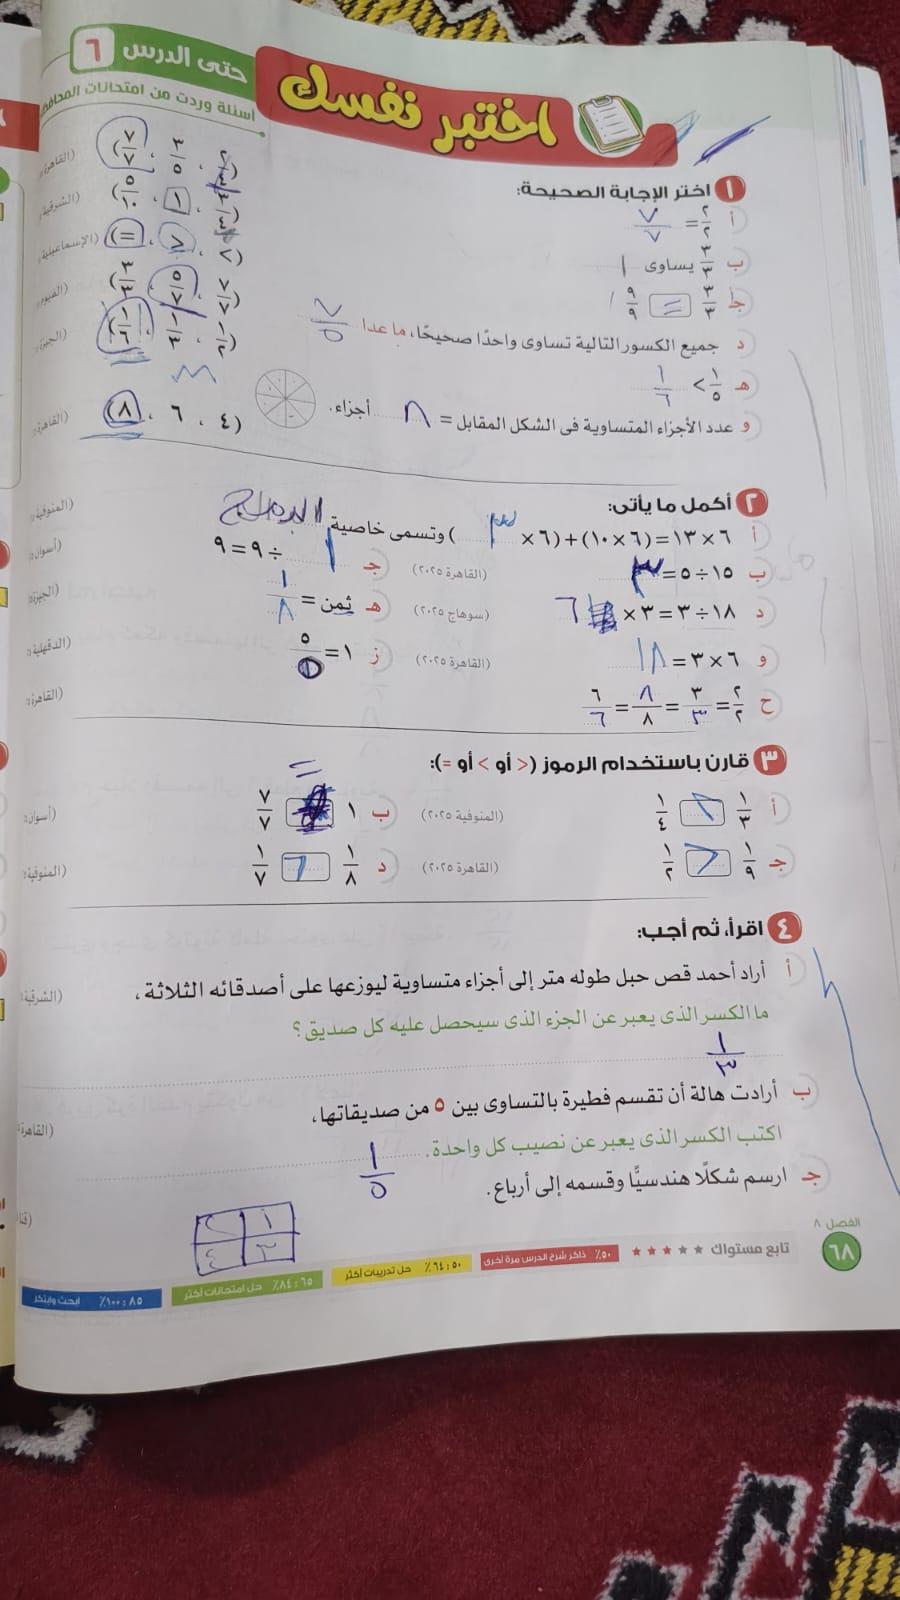 حتى الدرس ٦
أسئلة وردت من امتحانات المحافظات
اختبر نفسك
١ اختر الإجابة الصحيحة:
أ ٢/٢ = ٧/٧ ، ٣/٥ ، ٧/٧) (القاهرة
ب ٣/٣ يساوى ١ ، ١ ، ٥/١٠) (الشرقية
ج ٣/٣ = ٩/٩ (> ، < ، =) (الإسماعيلية
د جميع الكسور التالية تساوى واحدًا صحيحًا، ما عدا ٧/٥ (٢/٢ ، ٥/٧ ، ٣/٣) (الفيوم
هـ ١/٥ > ١/٦ (١/٢ ، ١/٣ ، ١/٦) (الجيزة
و عدد الأجزاء المتساوية فى الشكل المقابل = ٨ أجزاء. (٤ ، ٦ ، ٨) (القاهرة
٢ أكمل ما يأتى:
أ ٦ × ١٣ = (٦ × ١٠) + (٦ × ٣) وتسمى خاصية (المنوفية
ب ١٥ ÷ ٥ = ٣ (القاهرة ٢٠٢٥) ج ÷ ٩ = ٩ (أسوان
د ١٨ ÷ ٣ = ٣ × ٦ (سوهاج ٢٠٢٥) هـ ثمن = ١/٨ (الجيزة
و ٦ × ٣ = ١٨ (القاهرة ٢٠٢٥) ز ١ = ٥/٥ (الدقهلية
ح ٢/٢ = ٣/٣ = ٨/٨ = ٦/٦ (القاهرة
٣ قارن باستخدام الرموز (< أو > أو =):
أ ١/٣ > ١/٤ (المنوفية ٢٠٢٥) ب ١ = ٧/٧ (أسوان
ج ١/٩ < ١/٢ (القاهرة ٢٠٢٥) د ١/٨ ١/٧ (المنوفية
٤ اقرأ، ثم أجب:
أ أراد أحمد قص حبل طوله متر إلى أجزاء متساوية ليوزعها على أصدقائه الثلاثة، (الشرقية
ما الكسر الذى يعبر عن الجزء الذى سيحصل عليه كل صديق؟
١/٣
ب أرادت هالة أن تقسم فطيرة بالتساوى بين ٥ من صديقاتها، (القاهرة
اكتب الكسر الذى يعبر عن نصيب كل واحدة. ١/٥
ج ارسم شكلًا هندسيًّا وقسمه إلى أرباع. (قنا
١ ٢
٣ ٤
الفصل ٨
٦٨ تابع مستواك ٥٠٪ ذاكر شرح الدرس مرة أخرى ٥٠ : ٦٤٪ حل تدريبات أكثر ٦٥ : ٨٤٪ حل امتحانات أكثر ٨٥ : ١٠٠٪ ابحث وابتكر